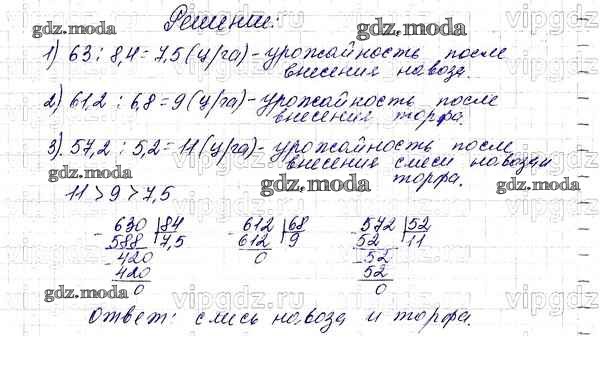 Решение:
1) 63 : 8,4 = 7,5 (ц/га) - урожайность после
внесения навоза.
2) 61,2 : 6,8 = 9 (ц/га) - урожайность после
внесения торфа
3) 57,2 : 5,2 = 11 (ц/га) - урожайность после
внесения смеси навоза и
торфа.
11 > 9 > 7,5
630 84 612 68 572 52
588 7,5 612 9 52 11
420 0 52
420 52
0 0
Ответ: смесь навоза и торфа.
gdz.moda
gdz.moda
gdz.moda
gdz.moda
gdz.moda
gdz.moda
gdz.moda
gdz.moda
vipgdz.ru
vipgdz.ru
vipgdz.ru